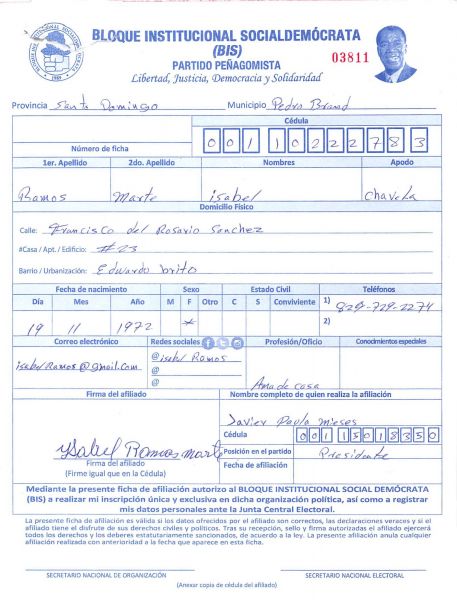 BLOQUE INSTITUCIONAL SOCIALDEMÓCRATA
(BIS)
PARTIDO PEÑAGOMISTA
03811
Libertad, Justicia, Democracia y Solidaridad
Provincia Santo Domingo Municipio Pedro Brand
Cédula
Número de ficha 001 1022278 3
1er. Apellido 2do. Apellido Nombres Apodo
Ramos Marte isabel Chavela
Domicilio Físico
Calle: Francisco del Rosario Sanchez
#Casa / Apt. / Edificio: #23
Barrio / Urbanización: Eduardo brito
Fecha de nacimiento Sexo Estado Civil Teléfonos
Día Mes Año M F Otro C S Conviviente 1) 829-729-2274
2)
19 11 1972 x
Correo electrónico Redes sociales Profesión/Oficio Conocimientos especiales
isabelRamos@gmail.com @isabel Ramos
@
@
Ama de casa
Firma del afiliado Nombre completo de quien realiza la afiliación
Javier Paulo Mieses
Cédula 001 1501835 0
Ysabel Ramos Marte
Posición en el partido Presidente
Firma del afiliado
(Firme igual que en la Cédula)
Fecha de afiliación
Mediante la presente ficha de afiliación autorizo al BLOQUE INSTITUCIONAL SOCIAL DEMÓCRATA
(BIS) a realizar mi inscripción única y exclusiva en dicha organización política, así como a registrar
mis datos personales ante la Junta Central Electoral.
La presente ficha de afiliación es válida si los datos ofrecidos por el afiliado son correctos, las declaraciones veraces y si el
afiliado tiene el disfrute de sus derechos civiles y políticos. Tras su recepción, sello y firma autorizada el afiliado ejercerá
todos los derechos y los deberes estatutariamente sancionados, de acuerdo a la ley. La presente afiliación anula cualquier
afiliación realizada con anterioridad a la fecha que aparece en esta ficha.
SECRETARIO NACIONAL DE ORGANIZACIÓN SECRETARIO NACIONAL ELECTORAL
(Anexar copia de cédula del afiliado)